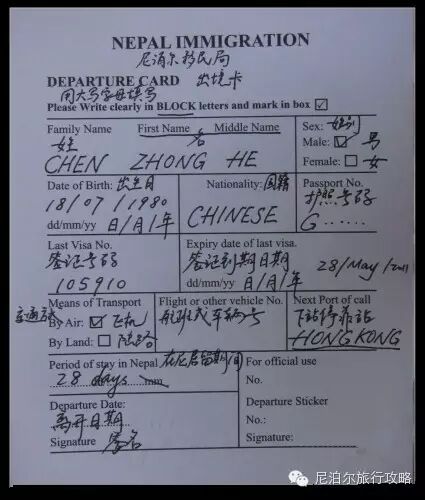 NEPAL IMMIGRATION
尼泊尔移民局
DEPARTURE CARD 出境卡
用大写字母填写
Please Write clearly in BLOCK letters and mark in box ☑
Family Name First Name Middle Name
姓 名
CHEN ZHONG HE
Sex: 性别
Male: ☑ 男
Female: ☐ 女
Date of Birth: 出生日
18/07/1980
dd/mm/yy 日/月/年
Nationality: 国籍
CHINESE
Passport No.
护照号码
G......
Last Visa No.
签证号码
105910
Expiry date of last visa.
签证到期日期
dd/mm/yy 日/月/年
28/May/2011
交通方式
Means of Transport
By Air: ☑ 飞机
By Land: ☐ 陆路
Flight or other vehicle No.
航班或车辆号
Next Port of call
下站停靠站
HONGKONG
Period of stay in Nepal 在尼居留期间
28 days mm
For official use
No.
Departure Date:
离开日期
Signature 签名
Departure Sticker
No.:
Signature:
尼泊尔旅行攻略